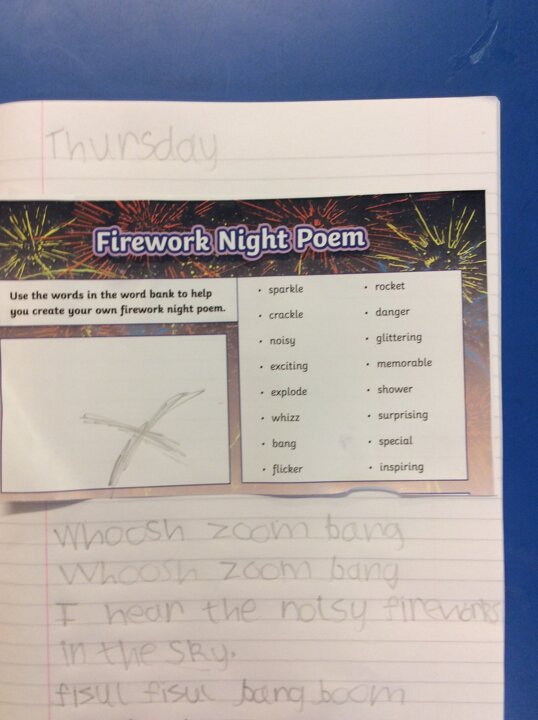 Thursday
Firework Night Poem
Use the words in the word bank to help
you create your own firework night poem.
• sparkle
• crackle
• noisy
• exciting
• explode
• whizz
• bang
• flicker
• rocket
• danger
• glittering
• memorable
• shower
• surprising
• special
• inspiring
Whoosh zoom bang
Whoosh zoom bang
I hear the noisy fireworks
in the sky.
fisul fisul bang boom